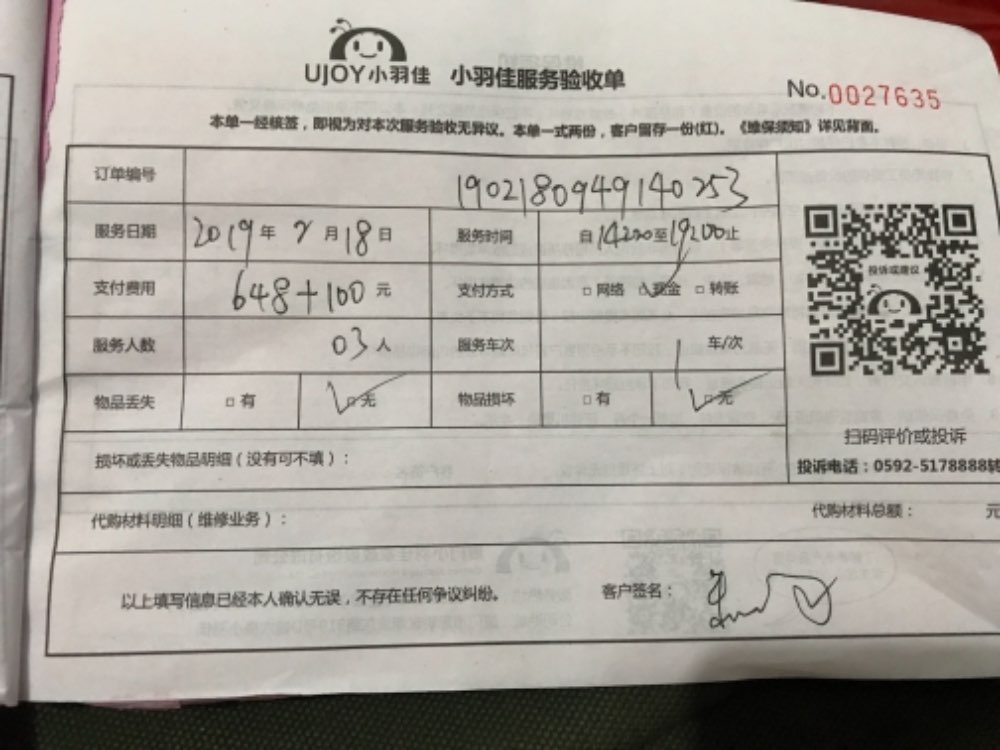 UJOY小羽佳 小羽佳服务验收单
No.0027635
本单一经核签，即视为对本次服务验收无异议。本单一式两份，客户留存一份(红)。《维保须知》详见背面。
订单编号 1902180949140253
服务日期 2019年2月18日 服务时间 自14:00至19:00止
支付费用 648+100元 支付方式 □网络 □现金 □转账
服务人数 03人 服务车次 1 车/次
物品丢失 □有 □无 物品损坏 □有 □无
投诉或建议
扫码评价或投诉
投诉电话：0592-5178888转
损坏或丢失物品明细（没有可不填）：
代购材料明细（维修业务）： 代购材料总额： 元
以上填写信息已经本人确认无误，不存在任何争议纠纷。 客户签名：